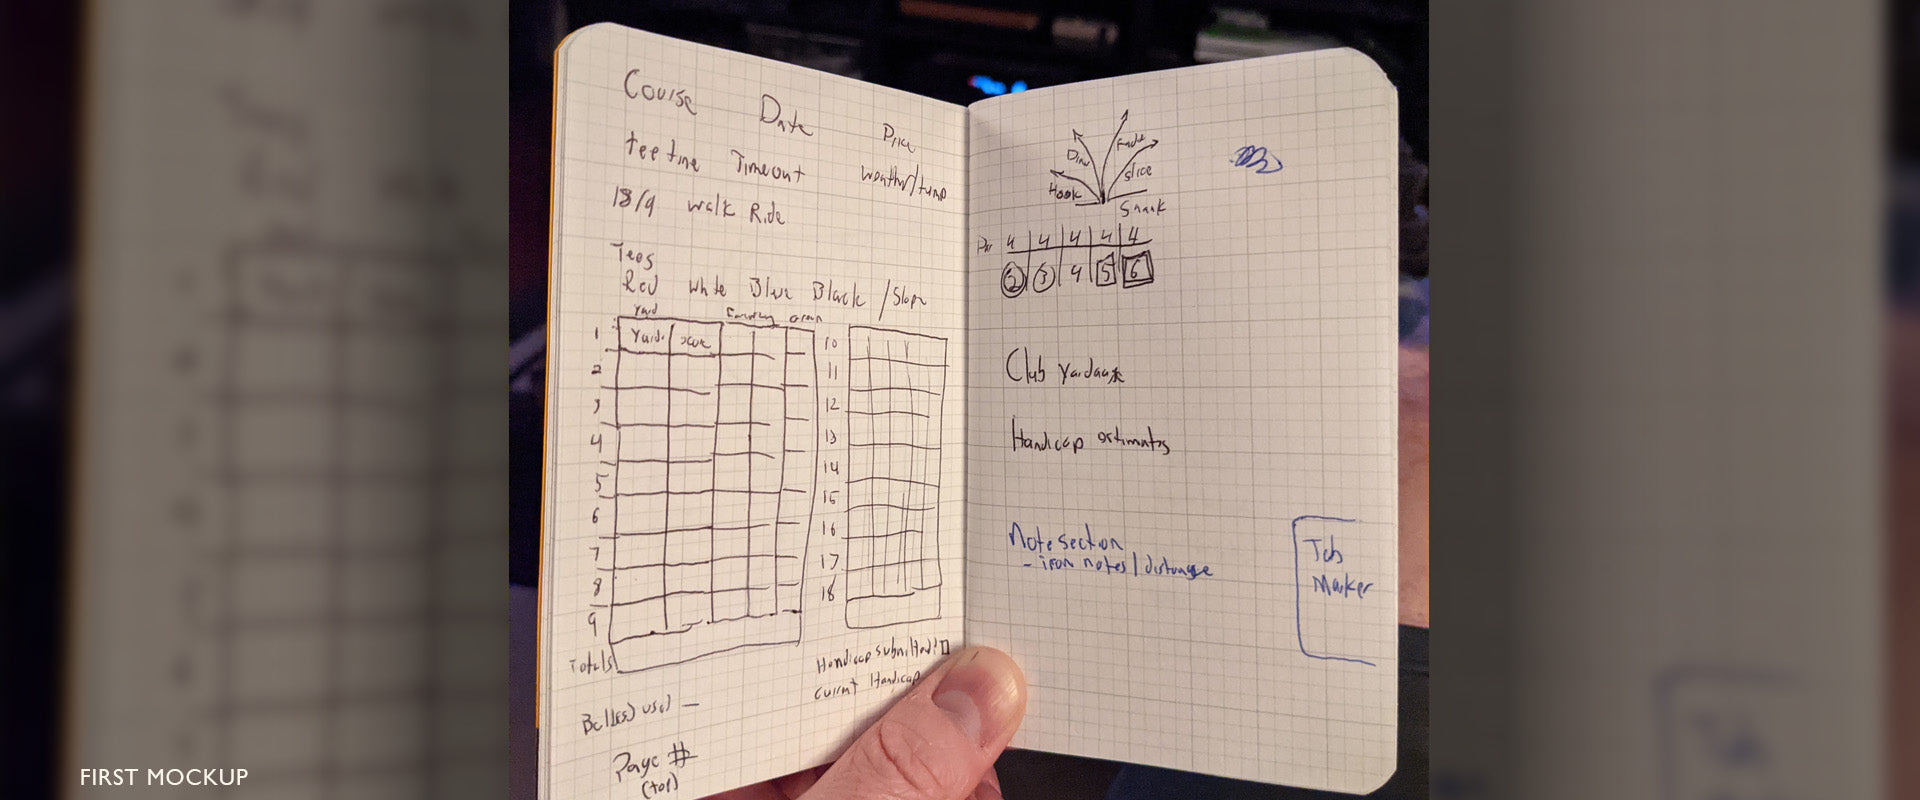 Course Date Price
tee time Timeout weather/temp
18/9 Walk Ride
Tees
Red White Blue Black /Slope
Yard Fairway Green
Yards score
1
2
3
4
5
6
7
8
9
Totals
10
11
12
13
14
15
16
17
18
Handicap submitted?
Current Handicap
Ball(s) used —
Page #
(top)
Hook Draw Fade Slice
Shank
Par 4 4 4 4 4
2 3 4 5 6
Club Yardage
Handicap estimates
Note section
- iron notes / distance
Tab
Marker
FIRST MOCKUP